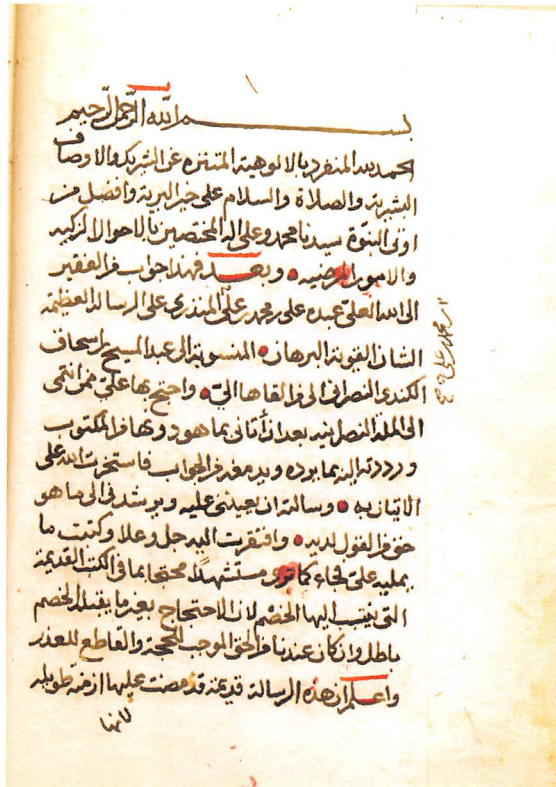 بسم الله الرحمن الرحيم
الحمد لله المنفرد بالالوهية المتنزه عن الشريك والاوصاف
البشرية والصلاة والسلام على خير البرية وافضل من
اوتى النبوة سيدنا محمد وعلى اله المختصين بالاحوال الزكيه
والامور المرضيه • وبعد فهذا جواب من الفقير
الى الله العلي عبده على بن محمد بن علي المنذرى على الرسالة العظيمة
الشان القوية البرهان • المنسوبة الى عبد المسيح بن اسحاق
الكندى النصرانى الى من القاها الي • واحتج بها علي ممن انتمى
الى الملة النصرانيه بعد ان أتانى بما هو دونها من المكتوب
ورددته اليه بما يوده ويدمغه من الجواب فاستخرت الله على
الاتيان به • وسالته ان يعيننى عليه ويرشدنى الى ما هو
حق من القول لديه • وافتقرت اليه جل وعلا وكتبت ما
يمليه علي فجاء كما ترى مستشهدًا محتجا بما فى الكتب القديمة
التى ينتسب اليها الخصم لان الاحتجاج بغير ما يقبله الخصم
باطل وان كان عندنا من الحق الموجب للحجة والقاطع للعذر
واعلم ان هذه الرسالة قديمة قد مضت عليها ازمنة طويله
لانها